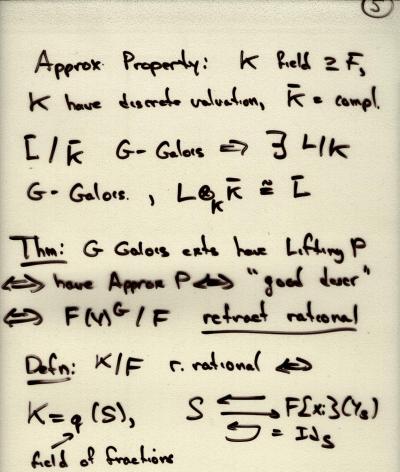 5
Approx Property: K field ⊇ F,
K have discrete valuation, K̄ = compl.
L̄/K̄ G-Galois ⇒ ∃ L/K
G-Galois, L⊗_K K̄ ≅ L̄
Thm: G Galois exts have Lifting P
⇔ have Approx P ⇔ "good descr"
⇔ F(V)^G/F retract rational
Defn: K/F r. rational ⇔
K = q(S), S ⇄ F[x_i](1/s)
= Id_S
field of fractions